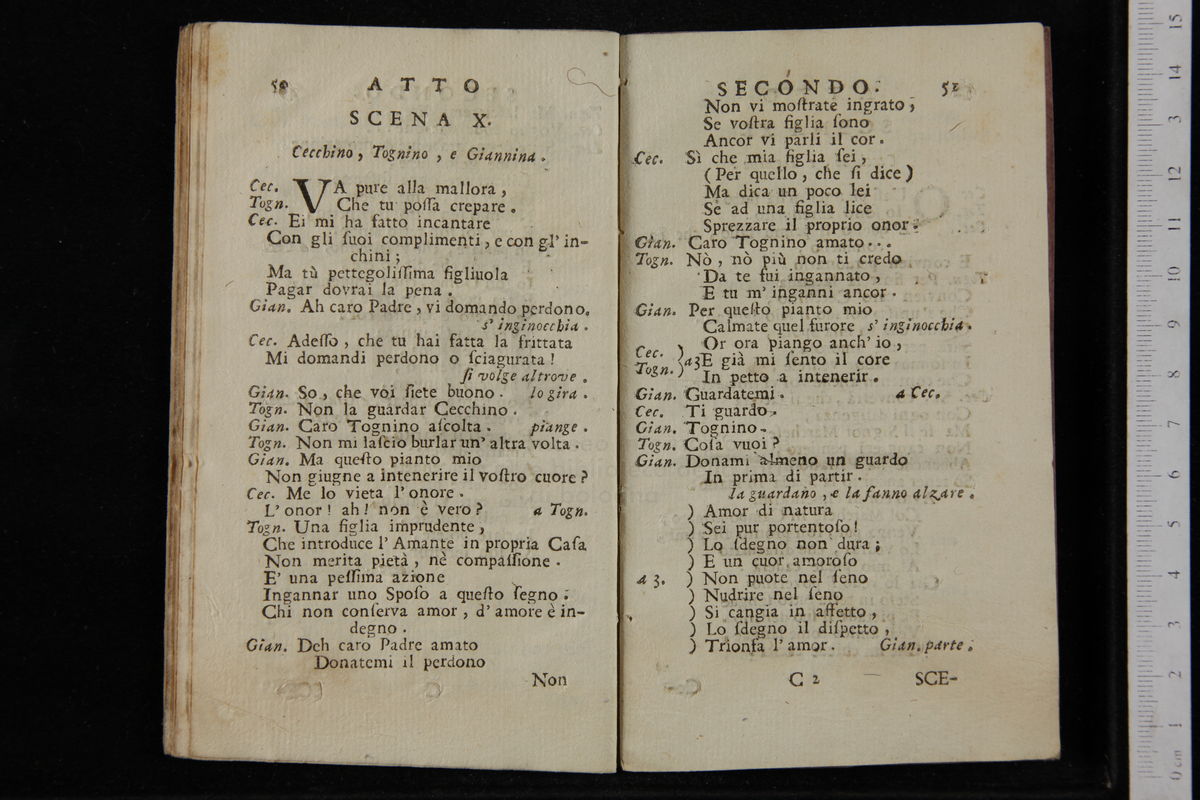 50 ATTO
SCENA X.
Cecchino, Tognino, e Giannina.
Cec. VA pure alla mallora,
Togn. Che tu poſſa crepare.
Cec. Ei mi ha fatto incantare
Con gli ſuoi complimenti, e con gl' in-
chini;
Ma tù pettegoliſſima figliuola
Pagar dovrai la pena.
Gian. Ah caro Padre, vi domando perdono.
s' inginocchia.
Cec. Adeſſo, che tu hai fatta la frittata
Mi domandi perdono o ſciagurata!
ſi volge altrove.
Gian. So, che voi ſiete buono. lo gira.
Togn. Non la guardar Cecchino.
Gian. Caro Tognino aſcolta. piange.
Togn. Non mi laſcio burlar un' altra volta.
Gian. Ma queſto pianto mio
Non giugne a intenerire il voſtro cuore?
Cec. Me lo vieta l' onore.
L' onor! ah! non è vero? a Togn.
Togn. Una figlia imprudente,
Che introduce l' Amante in propria Caſa
Non merita pietà, nè compaſſione.
E' una peſſima azione
Ingannar uno Spoſo a queſto ſegno.
Chi non conſerva amor, d' amore è in-
degno.
Gian. Deh caro Padre amato
Donatemi il perdono
Non
SECONDO. 51
Non vi moſtrate ingrato;
Se voſtra figlia ſono
Ancor vi parli il cor.
Cec. Sì che mia figlia ſei,
(Per quello, che ſi dice)
Ma dica un poco lei
Se ad una figlia lice
Sprezzare il proprio onor.
Gian. Caro Tognino amato...
Togn. Nò, nò più non ti credo
Da te fui ingannato,
E tu m' inganni ancor.
Gian. Per queſto pianto mio
Calmate quel furore s' inginocchia.
Cec. ) Or ora piango anch' io,
Togn. ) a3 E già mi ſento il core
In petto a intenerir.
Gian. Guardatemi. a Cec.
Cec. Ti guardo.
Gian. Tognino.
Togn. Coſa vuoi?
Gian. Donami almeno un guardo
In prima di partir.
la guardano, e la fanno alzare.
) Amor di natura
) Sei pur portentoſo!
) Lo ſdegno non dura;
) E un cuor amoroſo
a 3. ) Non puote nel ſeno
) Nudrire nel ſeno
) Si cangia in affetto,
) Lo ſdegno il diſpetto,
) Trionfa l' amor. Gian. parte.
C 2 SCE-
0 cm 1 2 3 4 5 6 7 8 9 10 11 12 13 14 15